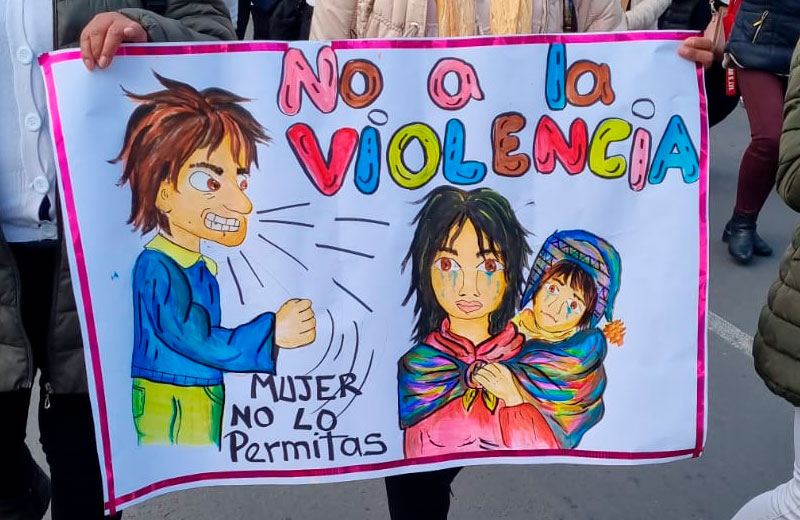 No a la
VIOLENCIA
MUJER
NO LO
Permitas